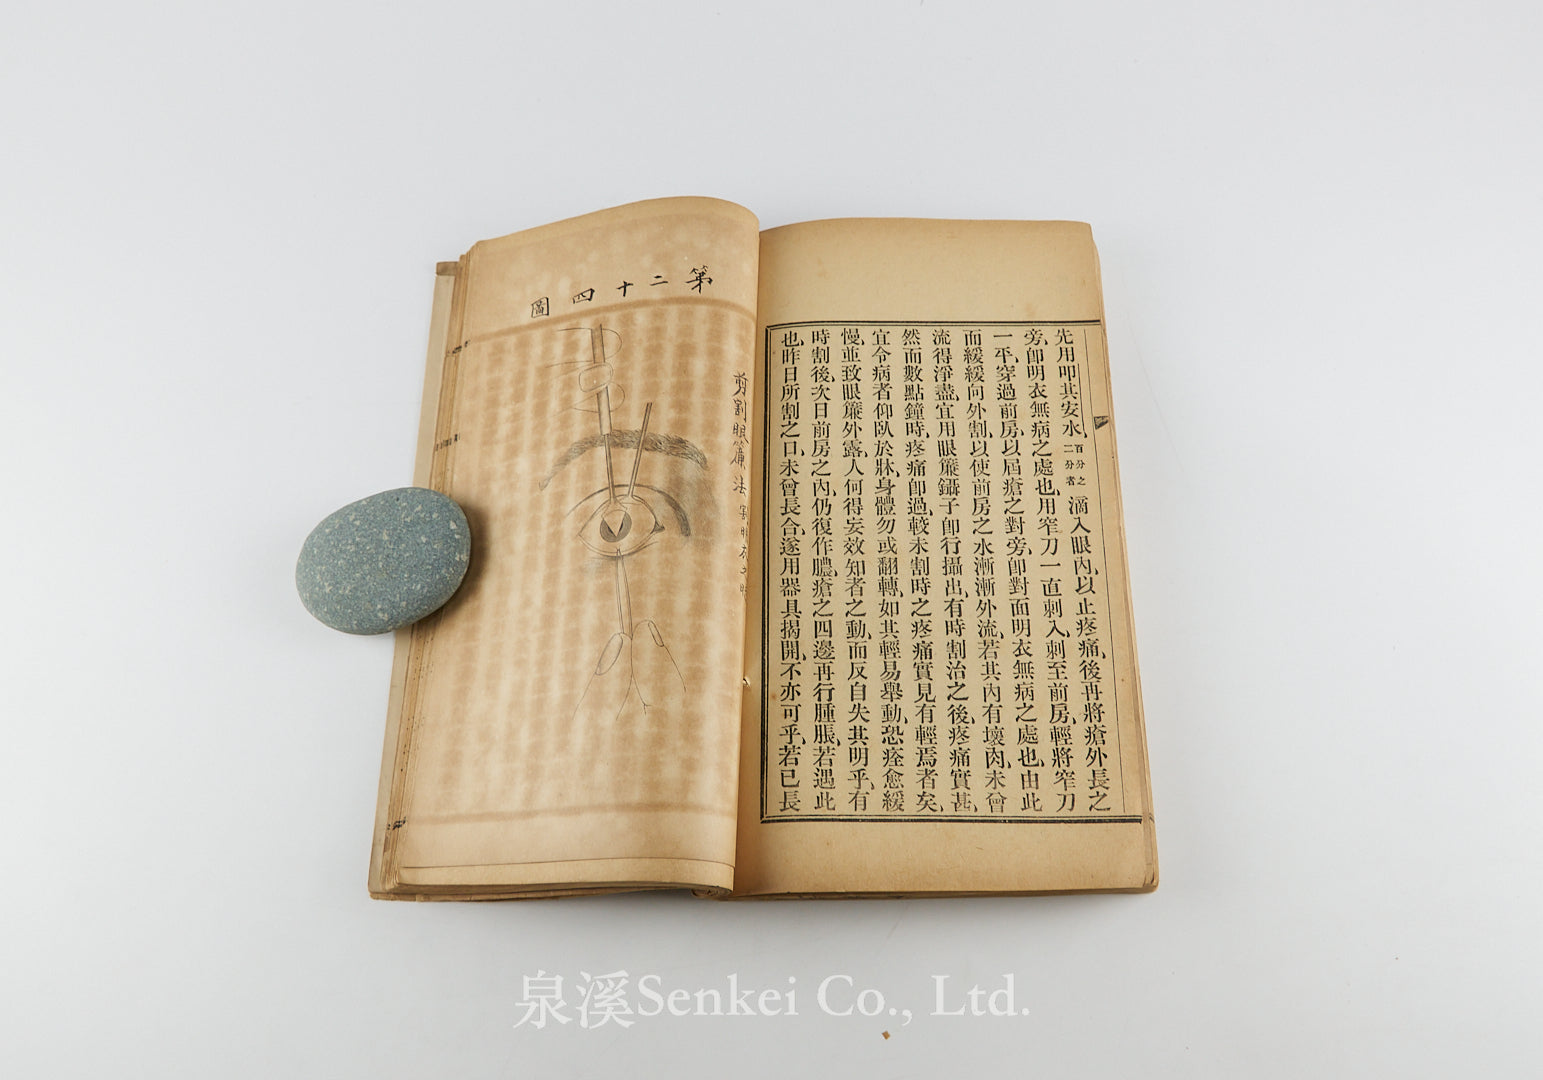 先用叩其安水、百分之二分者滴入眼內、以止疼痛、後再將瘡外長之
旁、卽明衣無病之處也、用窄刀一直刺入、刺至前房、輕將窄刀
一平、穿過前房、以屆瘡之對旁、卽對面明衣無病之處也、由此
而緩緩向外割、以使前房之水漸漸外流、若其內有壞肉、未曾
流得淨盡、宜用眼簾鑷子卽行攝出、有時割治之後、疼痛實甚、
然而數點鐘時、疼痛卽過、較未割時之疼痛實見有輕焉者矣、
宜令病者仰臥於牀、身體勿或翻轉、如其輕易舉動、恐痊愈緩
慢、並致眼簾外露、人何得妄效知者之動、而反自失其明乎、有
時割後、次日前房之內、仍復作膿、瘡之四邊再行腫脹、若遇此
也、昨日所割之口、未曾長合、遂用器具揭開、不亦可乎、若已長
第二十四圖
剪割眼簾法
泉溪Senkei Co., Ltd.